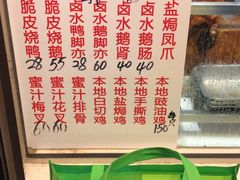 脆皮烧鸭 28
脆皮烧鹅 55
卤水鸭脚亦 28
卤水鹅脚亦 60
卤水鹅肾 40
卤水鹅肠 40
盐焗凤爪
蜜汁梅叉 60
蜜汁花叉 60
蜜汁排骨
本地白切鸡
本地盐焗鸡
本地手撕鸡
本地豉油鸡 150